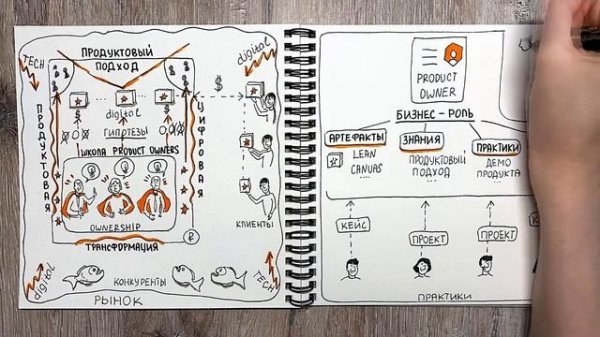 TECH
ПРОДУКТОВЫЙ
ПОДХОД
digital
$
ПРОДУКТОВАЯ
digital
ГИПОТЕЗЫ
ЦИФРОВАЯ
ШКОЛА PRODUCT OWNERS
OWNERSHIP
ТРАНСФОРМАЦИЯ
₽
КЛИЕНТЫ
digital
КОНКУРЕНТЫ
TECH
РЫНОК
PRODUCT
OWNER
БИЗНЕС-РОЛЬ
АРТЕФАКТЫ
ЗНАНИЯ
ПРАКТИКИ
LEAN
CANVAS
...
ПРОДУКТОВЫЙ
ПОДХОД
...
ДЕМО
ПРОДУКТА
...
КЕЙС
ПРОЕКТ
ПРОЕКТ
ПРАКТИКИ